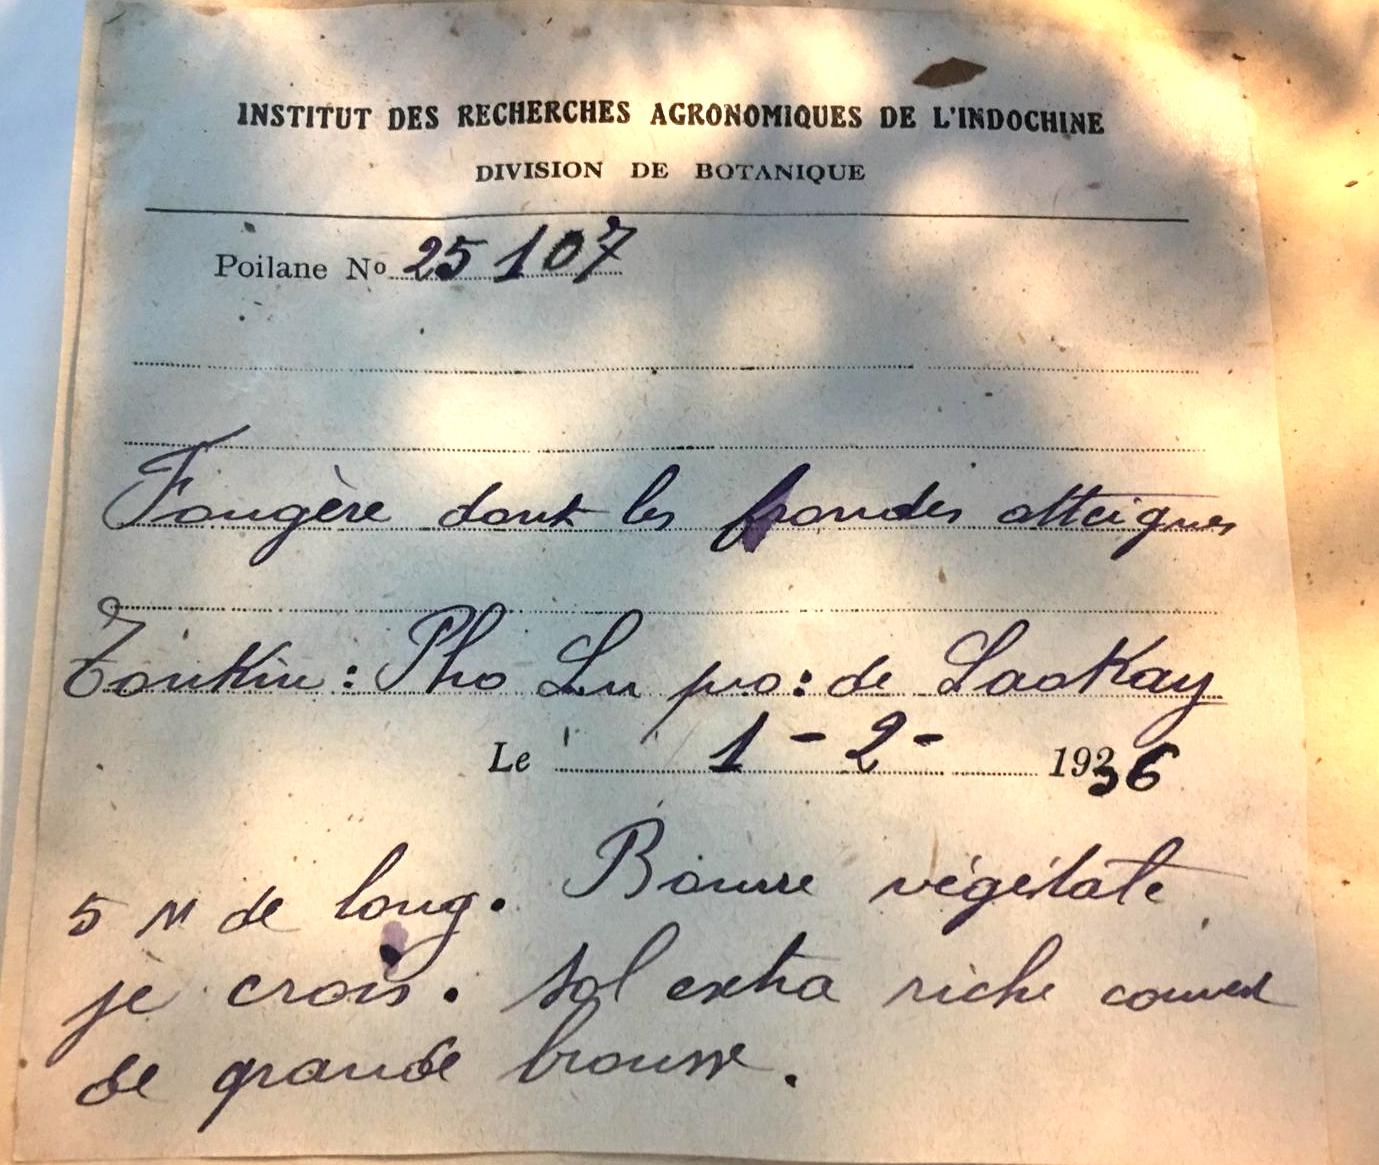 INSTITUT DES RECHERCHES AGRONOMIQUES DE L'INDOCHINE
DIVISION DE BOTANIQUE
Poilane No 25107
Fougère dont les frondes atteignes
Tonkin : Pho Lu pro: de LaoKay
Le 1 - 2 - 1936
5 M de long. Bourre végétale
je crois. Sol extra riche couvert
de grande brousse.